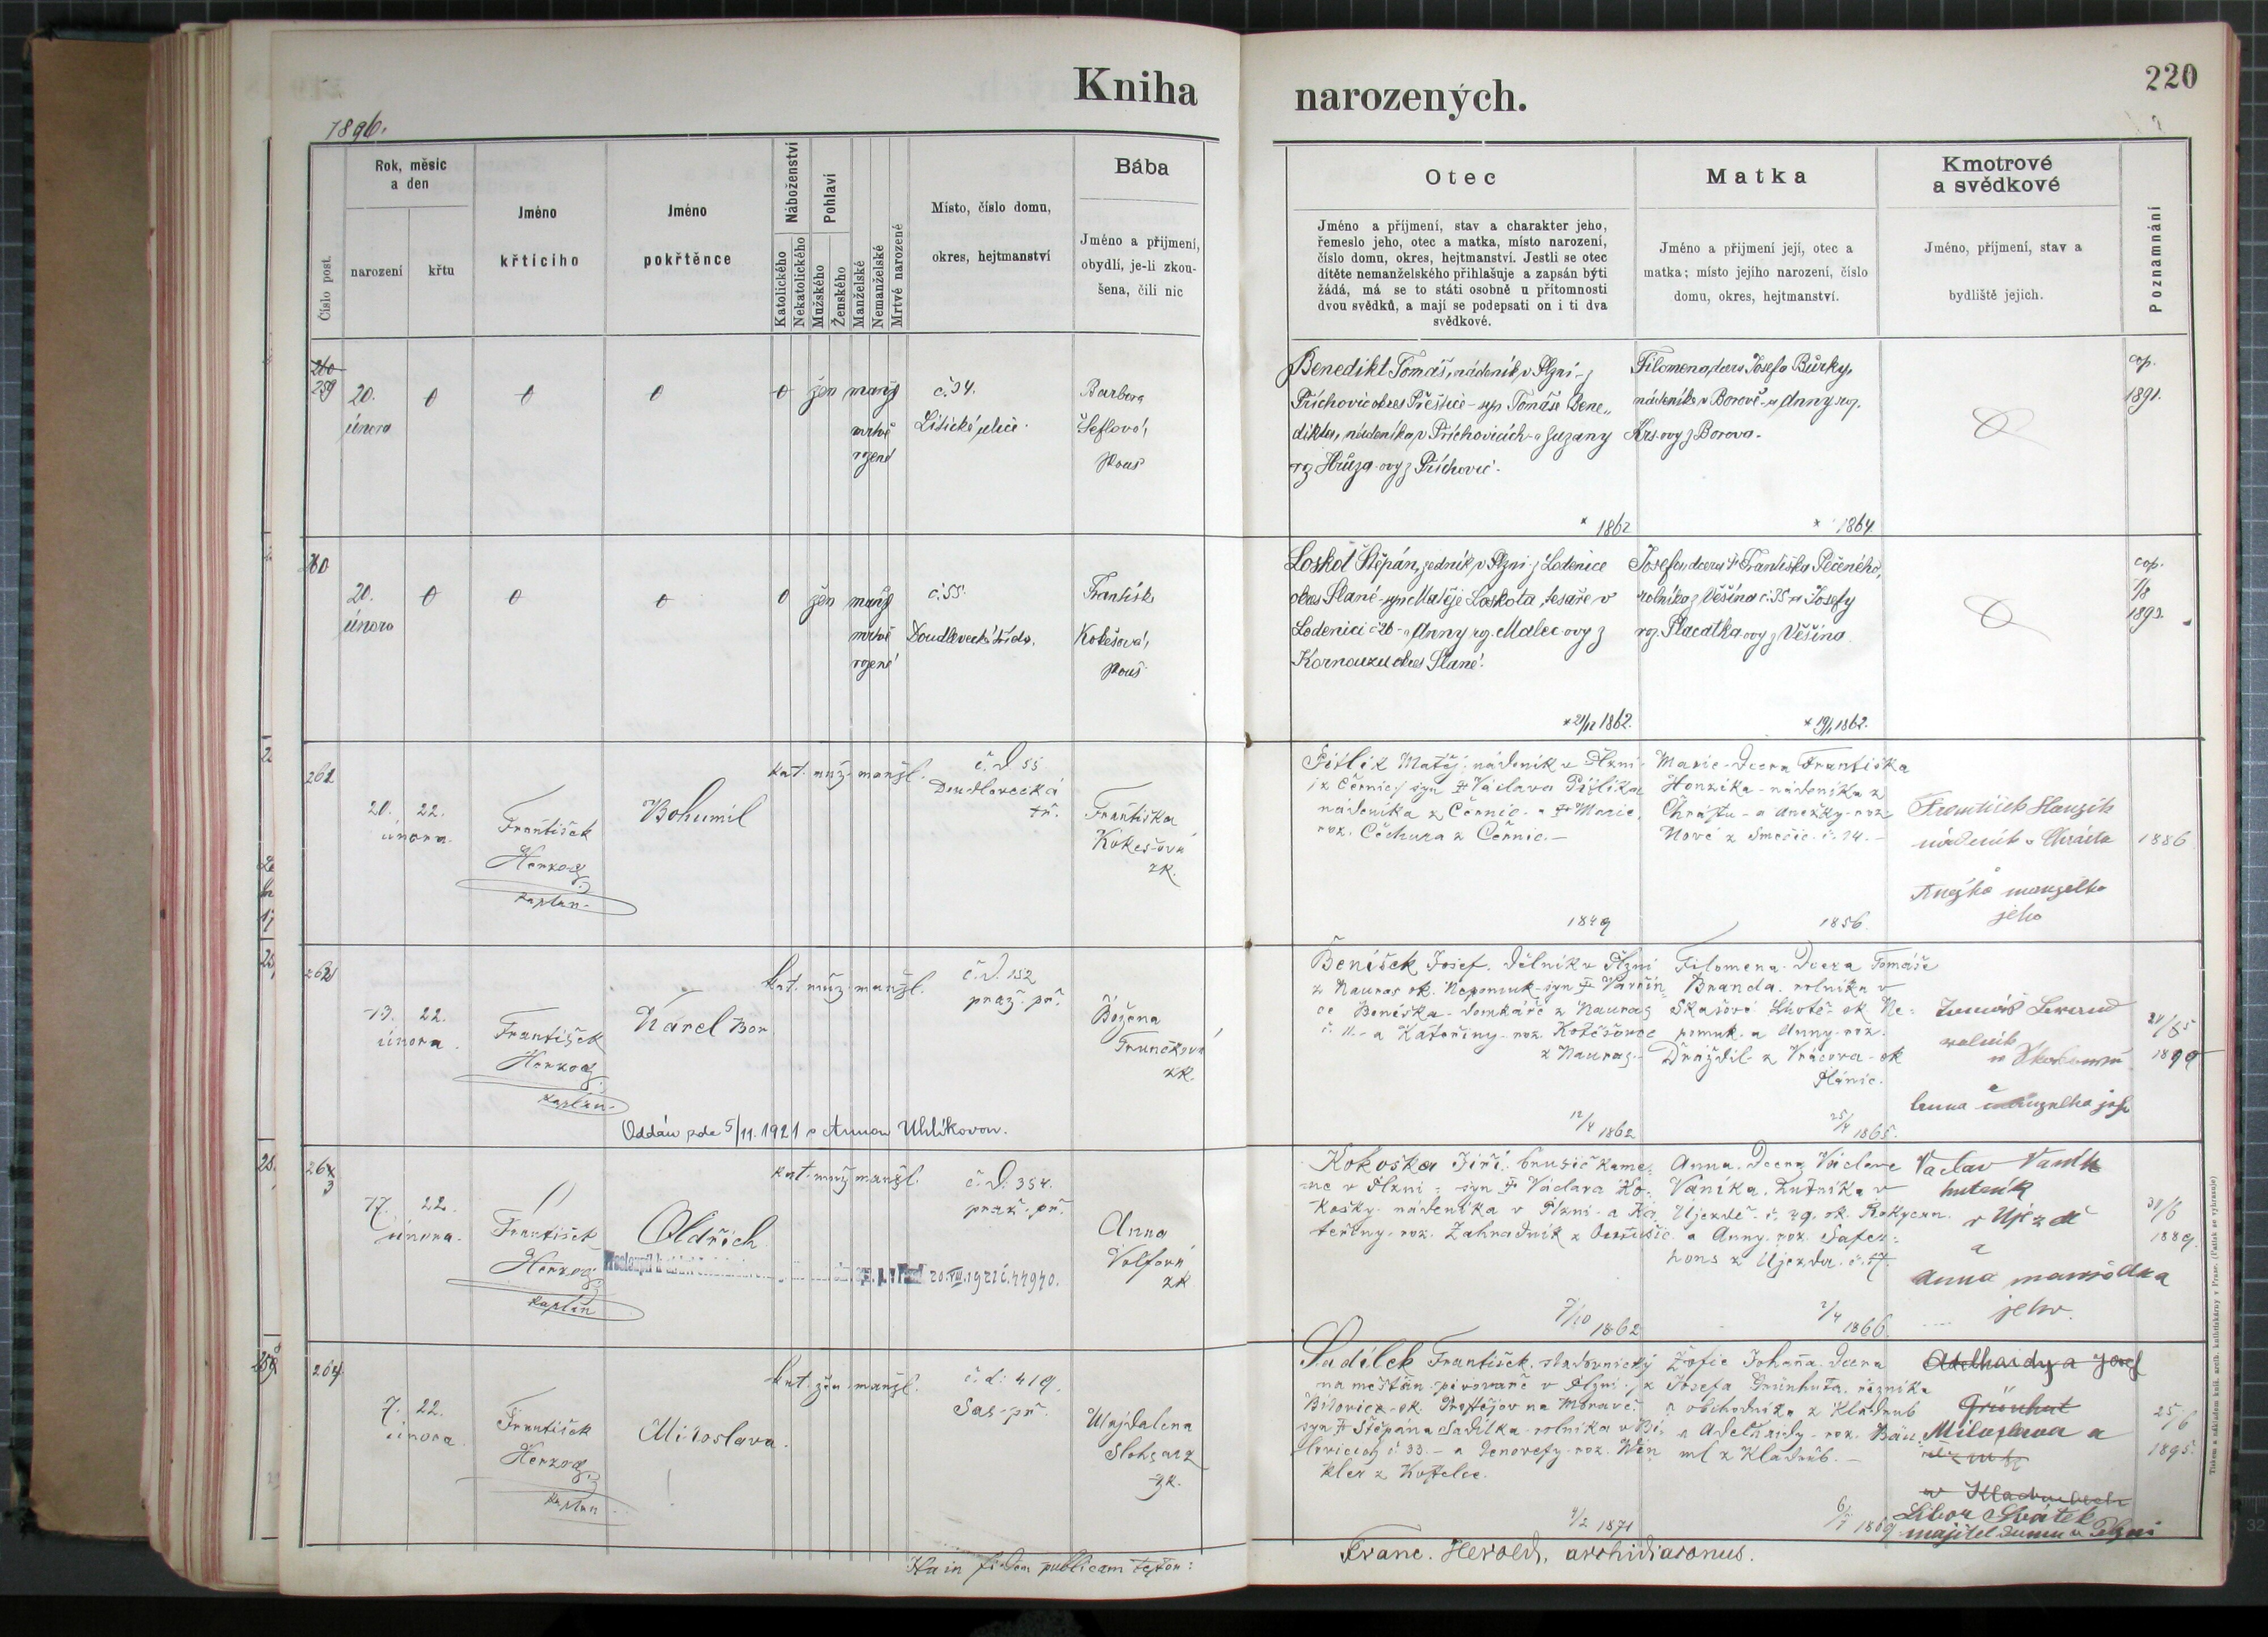 Kniha
narozených.
220
1896.
Číslo post.
Rok, měsíc
a den
narození
křtu
Jméno
křtícího
Jméno
pokřtěnce
Náboženství
Katolického
Nekatolického
Pohlaví
Mužského
Ženského
Manželské
Nemanželské
Mrtvé narozené
Místo, číslo domu,
okres, hejtmanství
Bába
Jméno a přijmení,
obydlí, je-li zkou-
šena, čili nic
Otec
Jméno a příjmení, stav a charakter jeho,
řemeslo jeho, otec a matka, místo narození,
číslo domu, okres, hejtmanství. Jestli se otec
dítěte nemanželského přihlašuje a zapsán býti
žádá, má se to státi osobně u přítomnosti
dvou svědků, a mají se podepsati on i ti dva
svědkové.
Matka
Jméno a přijmení její, otec a
matka; místo jejího narození, číslo
domu, okres, hejtmanství.
Kmotrové
a svědkové
Jméno, příjmení, stav a
bydliště jejich.
Poznamnání
260
259
20.
února
0
0
0
0 žen manž
mrtvě
rozené
č. 34.
Litická ulice.
Barbora
Šeflová,
zkouš
Benedikt Tomáš, nádeník v Plzni - z
Příchovic okres Přeštice - syn Tomáše Bene„
dikta, nádeníka v Příchovicích a Zuzany
roz. Hrůza-ovy z Příchovic.
* 1862
Filomena, dcera Josefa Bůrky,
nádeníka v Borově - a Anny roz.
Krs-ovy z Borova.
* 1864
cop.
1891.
260
20.
února
0
0
0
0 žen manž
mrtvě
rozené
č. 55.
Doudlevecká třída.
Františka
Kokešová,
zkouš
Loskot Štěpán, zedník v Plzni z Lodenice
okres Slané - syn Matěje Loskota, tesaře v
Lodenici č 26 - a Anny roz. Malec-ovy z
Kornouzu okres Slané.
* 21/12 1862.
Josefa, dcera † Františka Pečeného,
rolníka z Věšína č. 35 a Josefy
roz. Placatka-ovy z Věšína.
* 19/1 1862.
cop.
7/8
1892.
261
20. 22.
února.
František
Herzog
kaplan.
Bohumil
kat. muž. manžl.
č. d 55
Doudlevecká
tř.
Františka
Kokešová
zk.
Pitlík Matěj, nádeník v Plzni
(z Černic) syn † Václava Pitlíka
nádeníka z Černic - a † Marie,
roz. Cechura z Černic.-
1849
Marie - dcera Františka
Honzíka - nádeníka z
Chrástu - a Anežky - roz.
Nové z Smedčic č. 14.-
1856.
František Hanzík
nádeník v Chrástu
a
Anežka manželka
jeho
1886
262
13. 22.
února.
František
Herzog
kaplan.
Karel Bor.
kat. muž. manžl.
č. d. 152
praž. př.
Božena
Trunečková
zk.
Oddán zde 5/11. 1921 s Annou Uhlíkovou.
Beníšek Josef. dělník v Plzni
z Nauras ok. Nepomuk - syn † Vavřin„
ce Beníška - domkáře z Nauras
č. 11. - a Kateřiny - roz. Kotěšovec
z Nauras.-
12/4 1862
Filomena. dcera Tomáše
Branda. rolníka v
Skašově Lhotě - ok Ne-
pomuk. a Anny - roz.
Dráždil z Vracova - ok
Plánic.
25/4 1865.
rolník
Anna manželka jeho
1899
263
17. 22.
února.
František
Herzog
kaplan
Oldřich
kat. muž. manžl.
20. VIII. 1921 č. 44940.
č. d. 354.
praž. př.
Anna
Volfová
zk.
Kokoška Jiří. brusič kame-
ne v Plzni: syn † Václava Ko-
košky. nádeníka v Plzni - a Ka
teřiny - roz. Zahradník z
7/10 1862
Anna. dcera Václava
Vaníka. hutníka v
Újezdě č. 49. ok. Rokycan.
a Anny. roz. Safer-
hons z Újezda. č. 17.
2/4 1866.
Vaclav Vaník
hutník
v Újezdě
a
Anna manželka
jeho.
30/6
1889.
264
7. 22.
února.
František
Herzog
kaplan
Miloslava.
kat. žen. manžl.
č. d. 419.
Sas. př.
Majdalena
zk.
Sadílek František. sladovnický
na měšťan. pivovaře v Plzni. z
Bilovic - ok. Prostějov na Moravě.
syn † Štěpána Sadílka - rolníka v Bí-
lovicích č. 33. - a Genovefy - roz. Win
kler z Kostelce.
4/2 1871
Žofie Johanna. dcera
Josefa Grünhuta. řezníka
a obchodníka z Kladrub
a Adelhaidy - roz. Bäu
ml z Kladrub.-
6/7 1869
Adelhaidy a Josef
Grünhut
Miloslava a
v Kladrubech
Libor Svátek
majitel domu v Plzni
25/6
1895.
Ita in fidem publicam testor:
Franc. Herold, archidiaconus.